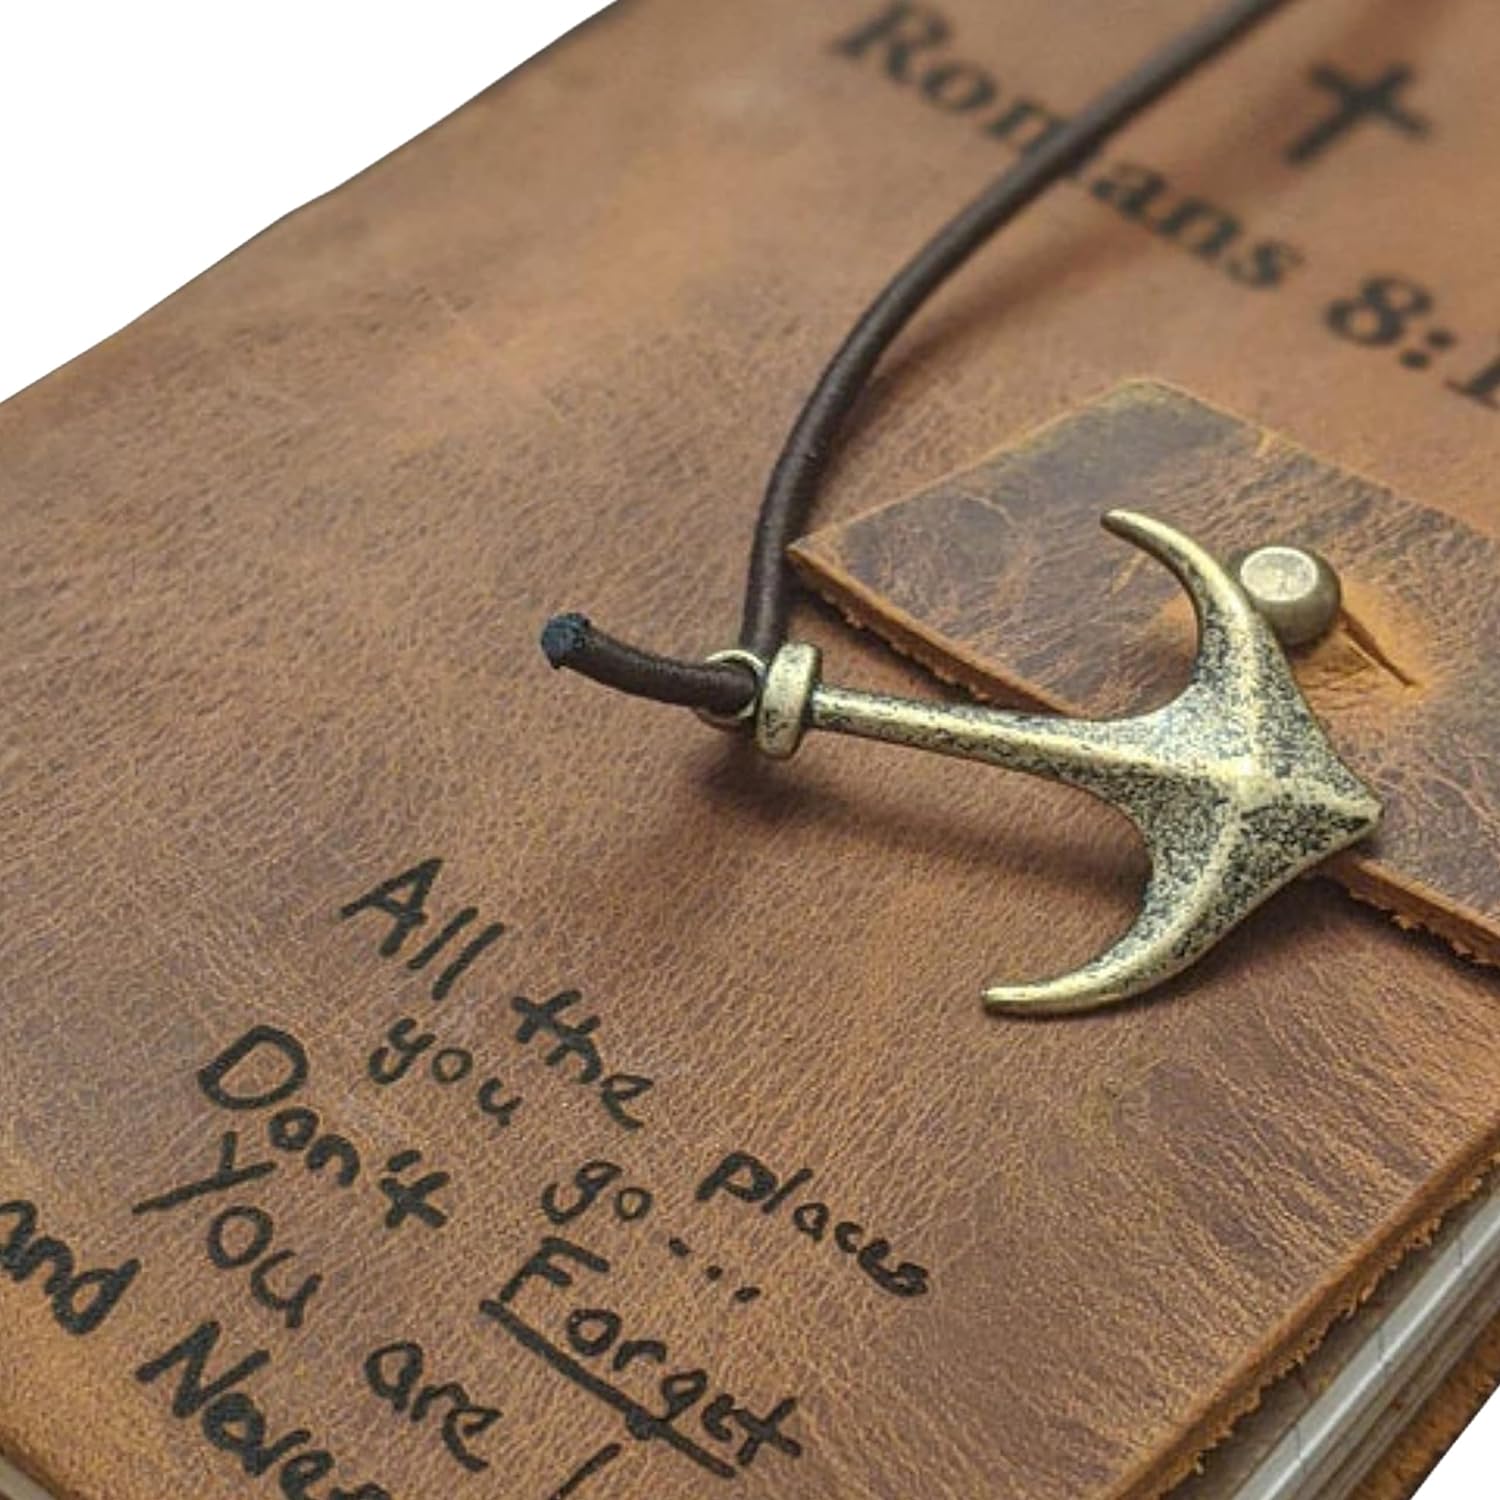 Romans 8:1
All the places
you go...
Don't Forget
you are
and Never